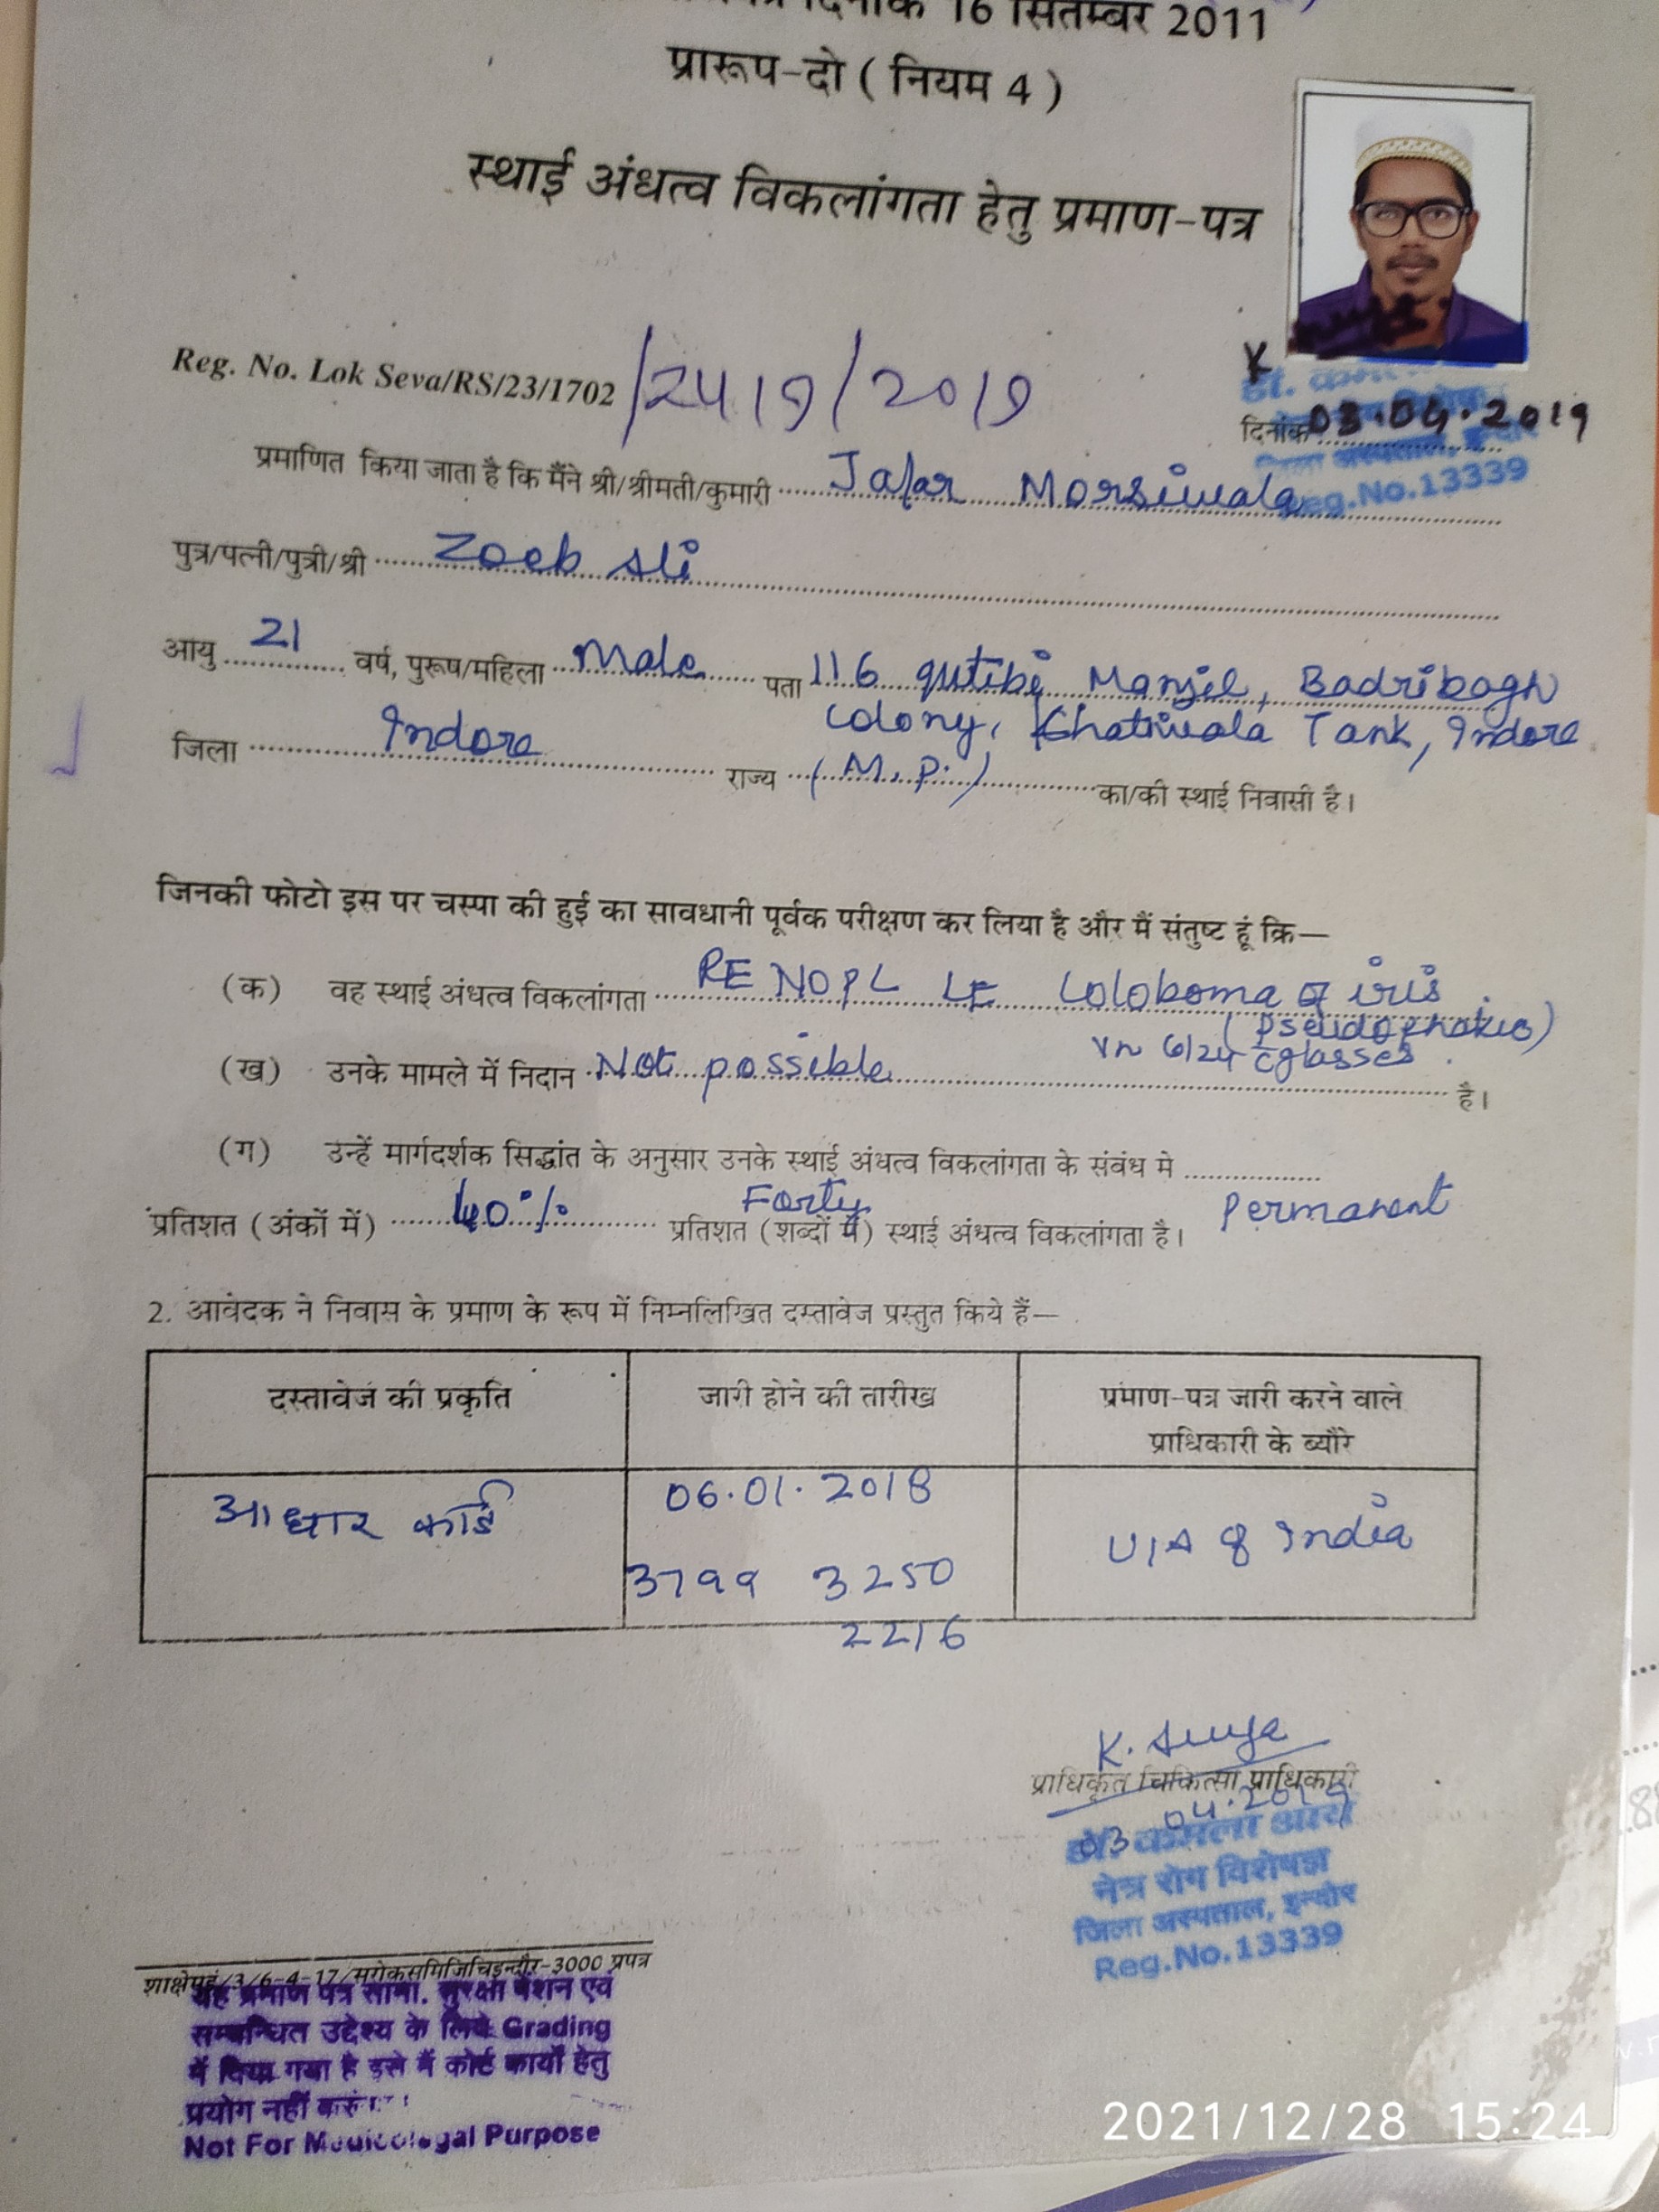 दिनांक 16 सितम्बर 2011
प्रारूप-दो ( नियम 4 )
स्थाई अंधत्व विकलांगता हेतु प्रमाण-पत्र
Reg. No. Lok Seva/RS/23/1702/2419/2019
दिनांक 03.04.2019
जिला अस्पताल, इन्दौर
Reg.No.13339
प्रमाणित किया जाता है कि मैंने श्री/श्रीमती/कुमारी Jafar Morsiwala
पुत्र/पत्नी/पुत्री/श्री Zoeb Ali
आयु 21 वर्ष, पुरूष/महिला Male पता 116 qutibi Manjil, Badribagh
colony, Khatiwala Tank, Indore
जिला Indore राज्य (M.P.) का/की स्थाई निवासी है।
जिनकी फोटो इस पर चस्पा की हुई का सावधानी पूर्वक परीक्षण कर लिया है और मैं संतुष्ट हूं क्रि—
(क) वह स्थाई अंधत्व विकलांगता RE NOPL LE Coloboma of iris
(Pseudophakia)
Vn 6/24 c̄ glasses.
(ख) उनके मामले में निदान Not possible है।
(ग) उन्हें मार्गदर्शक सिद्धांत के अनुसार उनके स्थाई अंधत्व विकलांगता के संबंध मे
प्रतिशत (अंकों में) 40% Forty प्रतिशत (शब्दों में) स्थाई अंधत्व विकलांगता है। Permanent
2. आवेदक ने निवास के प्रमाण के रूप में निम्नलिखित दस्तावेज प्रस्तुत किये हैं—
दस्तावेज की प्रकृति जारी होने की तारीख प्रमाण-पत्र जारी करने वाले
प्राधिकारी के ब्यौरे
आधार कार्ड 06.01.2018 UIA of India
3799 3250
2216
प्राधिकृत चिकित्सा प्राधिकारी
03.04.2019
डॉ. कमला आर्य
नेत्र रोग विशेषज्ञ
जिला अस्पताल, इन्दौर
Reg.No.13339
शाक्षेमुइं/3/6-4-17/सगेकसमिजिचिइन्दौर-3000 प्रपत्र
यह प्रमाण पत्र सामा. सुरक्षा पेंशन एवं
सम्बन्धित उद्देश्य के लिये Grading
में दिया गया है इसे मैं कोर्ट कार्यों हेतु
प्रयोग नहीं
Not For Medicolegal Purpose
2021/12/28 15:24